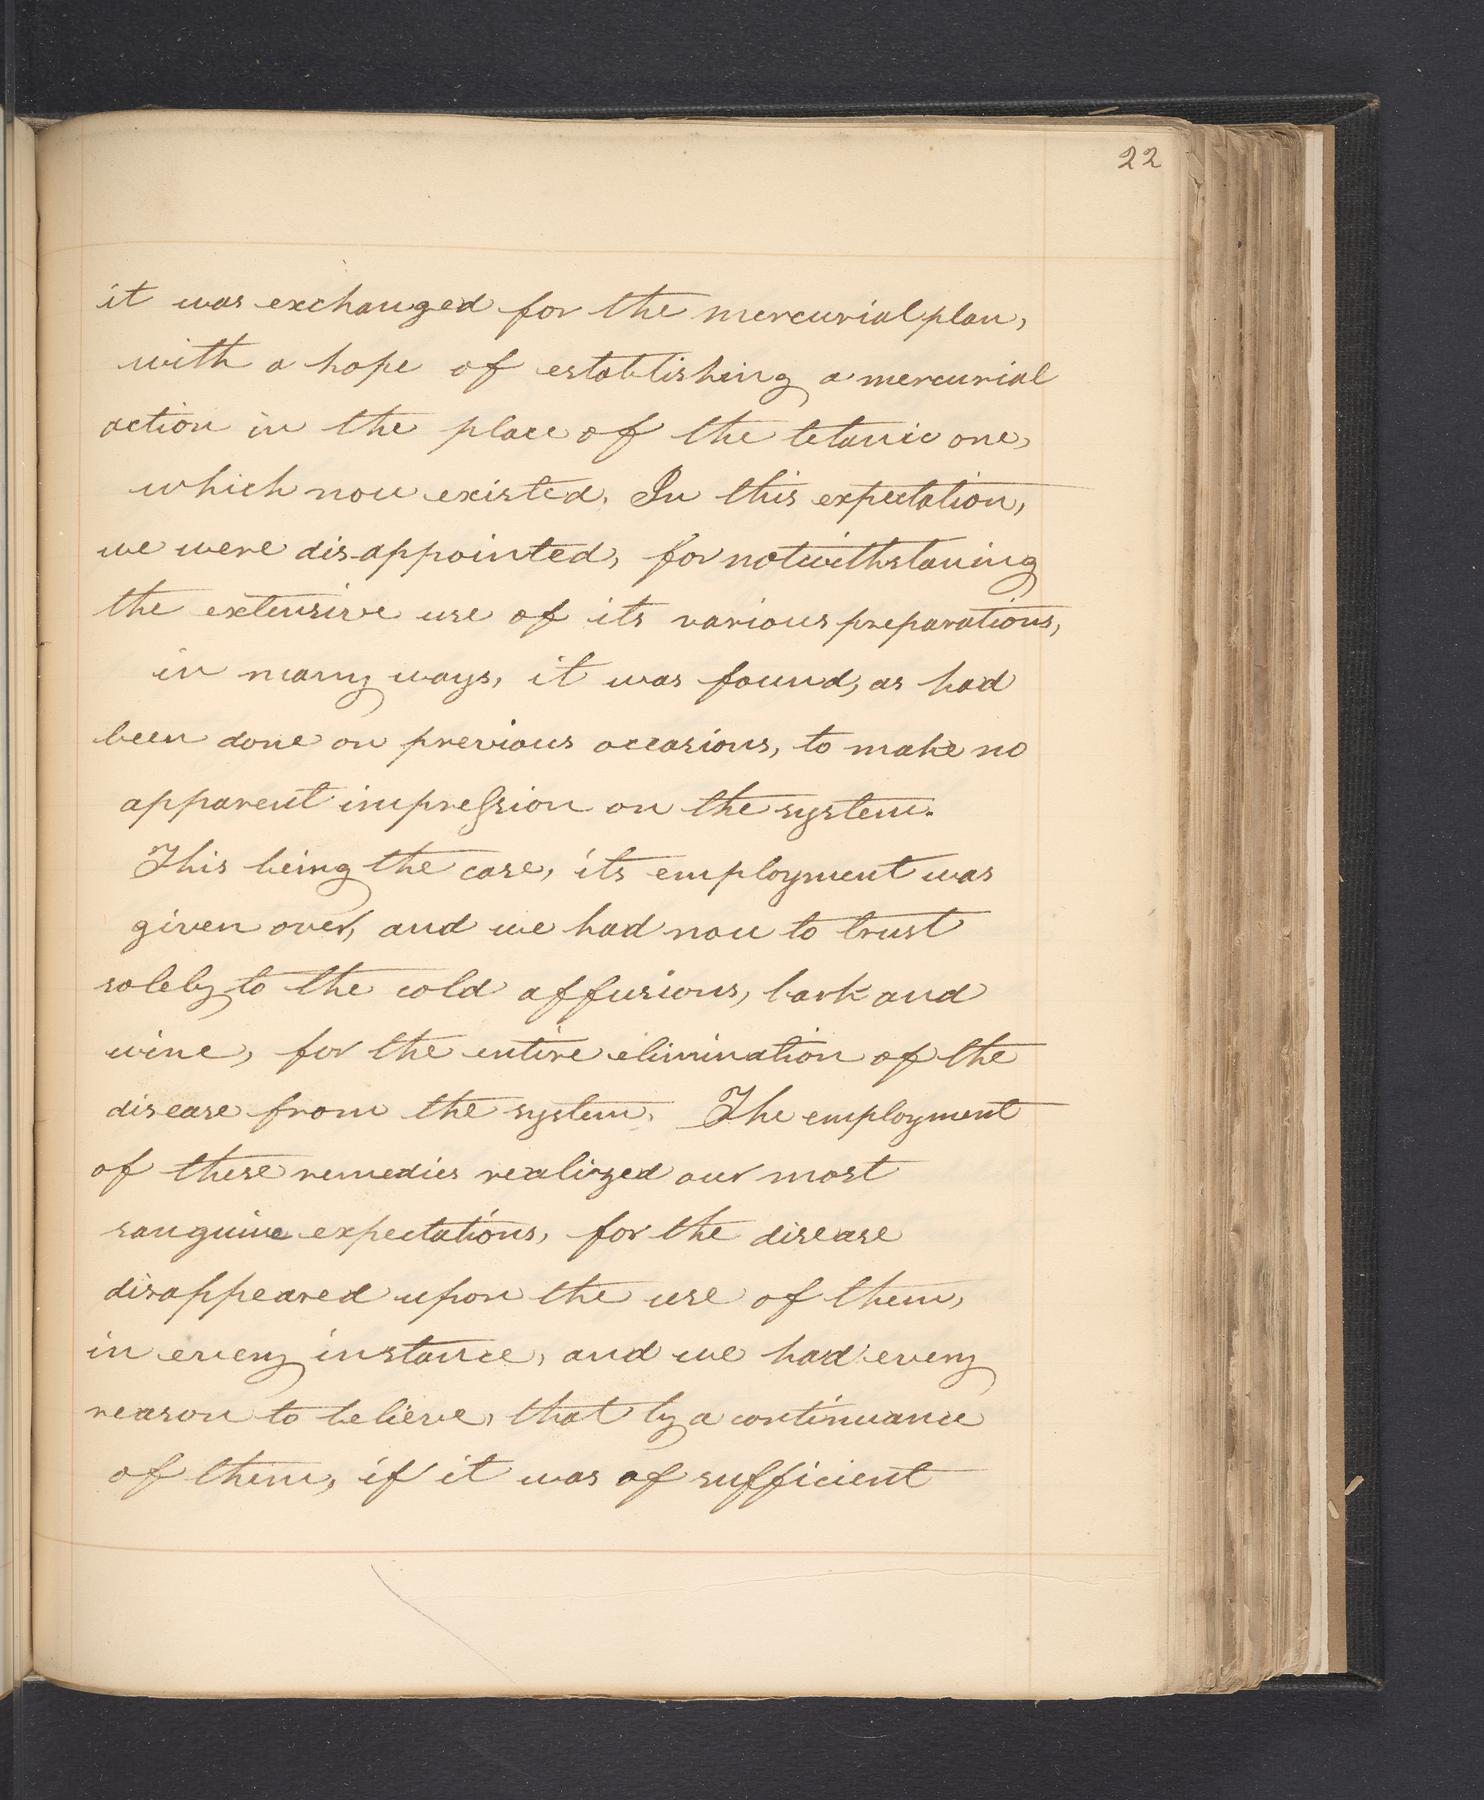 22
it was exchanged for the mercurial plan,
with a hope of establishing a mercurial
action in the place of the tetanic one,
which now existed. In this expectation,
we were disappointed, for notwithstaning
the extensive use of its various preparations,
in many ways, it was found, as had
been done on previous occasions, to make no
apparent impreſsion on the system.
This being the case, its employment was
given over, and we had now to trust
solely to the cold affusions, bark and
wine, for the entire elimination of the
disease from the system. The employment
of these remedies realized our most
sanguine expectations, for the disease
disappeared upon the use of them,
in every instance, and we had every
reason to believe, that by a continuance
of them, if it was of sufficient